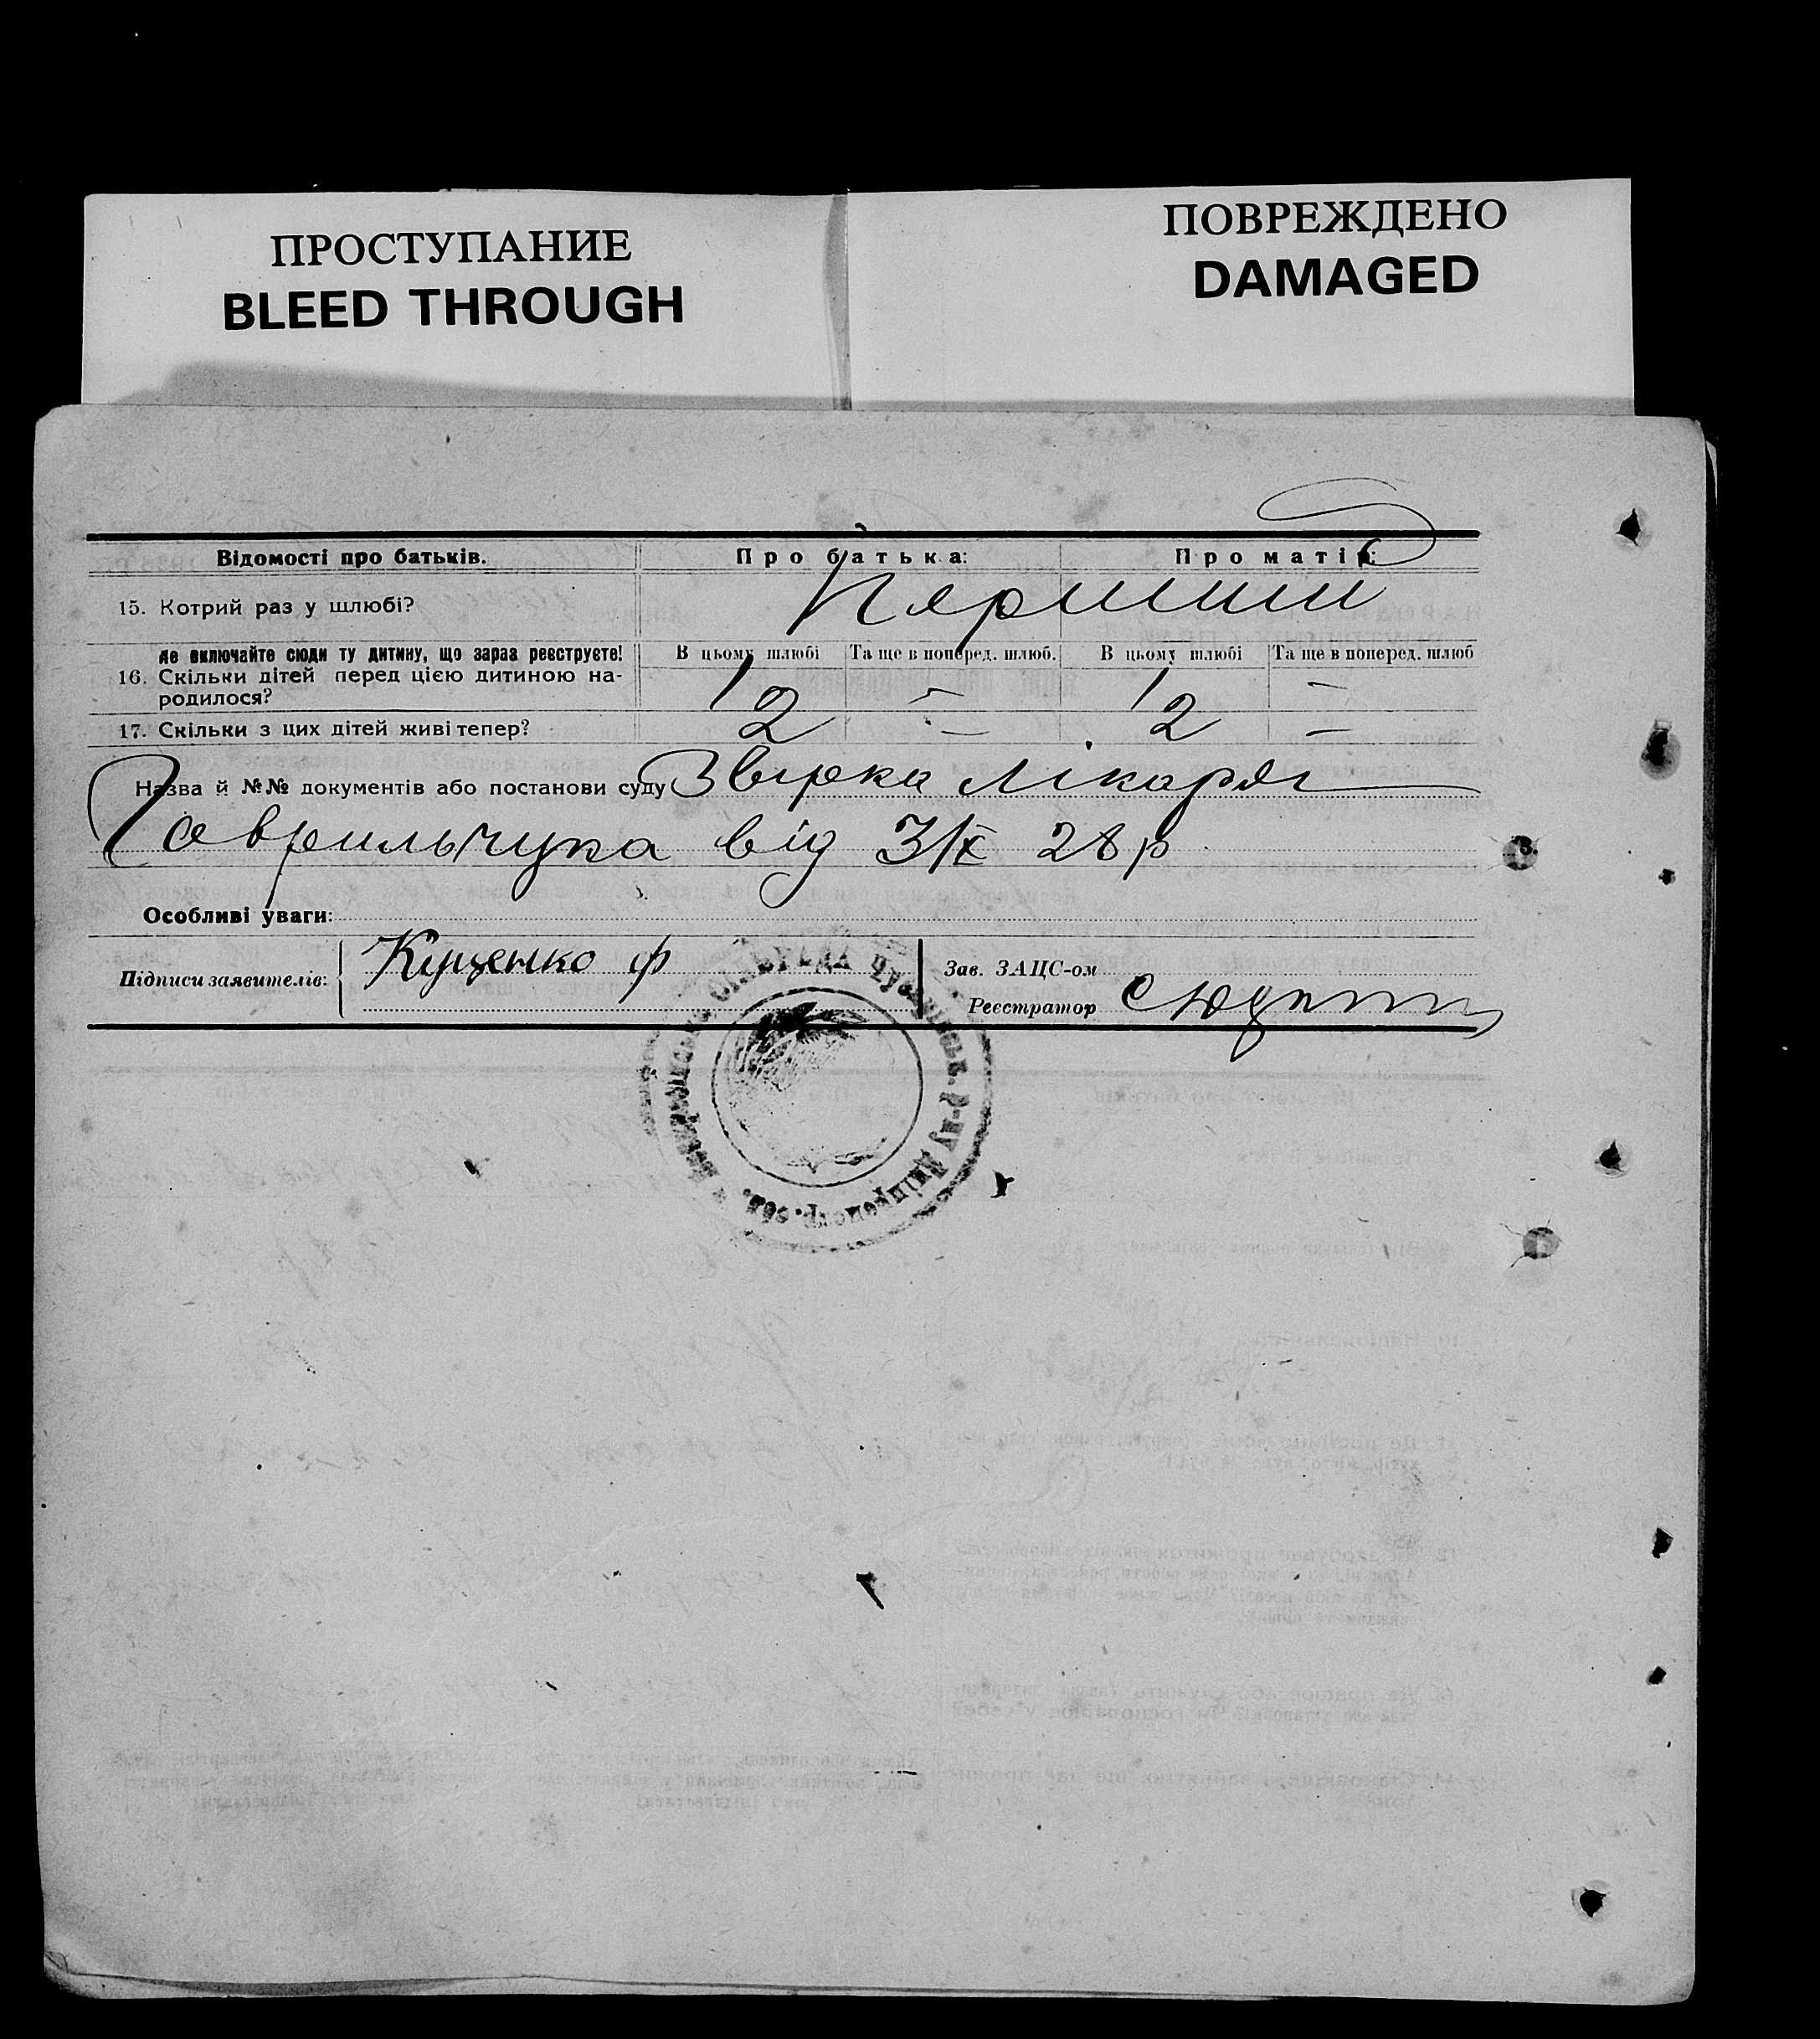 ПРОСТУПАНИЕ
BLEED THROUGH
ПОВРЕЖДЕНО
DAMAGED
Відомості про батьків. Про батька: Про матір:
15. Котрий раз у шлюбі? Перший
Не включайте сюди ту дитину, що зараз реєструєте! В цьому шлюбі Та ще в поперед. шлюб. В цьому шлюбі Та ще в поперед. шлюб
16. Скільки дітей перед цією дитиною на-
родилося? 2 — 2 —
17. Скільки з цих дітей живі тепер? 2 — 2 —
Назва й №№ документів або постанови суду Звірка лікаря
Гаврильчука від 3/ІХ 28 р
Особливі уваги:
Підписи заявителів: Куценко Ф
Зав. ЗАЦС-ом
Реєстратор
р-ну Дніпропетр. обл.